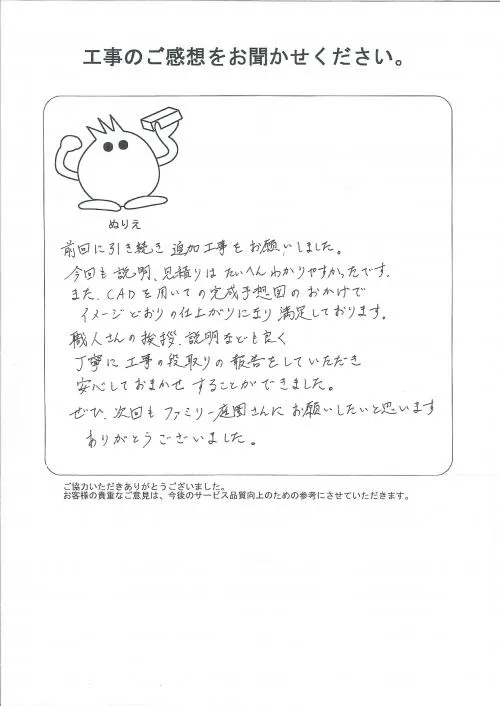 工事のご感想をお聞かせください。
ぬりえ
前回に引き続き 追加工事を お願いしました。
今回も 説明、見積りは たいへんわかりやすかったです。
また、CADを用いての完成予想図の おかげで
イメージどおりの仕上がりになり 満足しております。
職人さんの挨拶、説明なども良く
丁寧に 工事の段取りの 報告をしていただき
安心しておまかせ することができました。
ぜひ、次回も ファミリー庭園さんに お願いしたいと思います
ありがとうございました。
ご協力いただきありがとうございました。
お客様の貴重なご意見は、今後のサービス品質向上のための参考にさせていただきます。